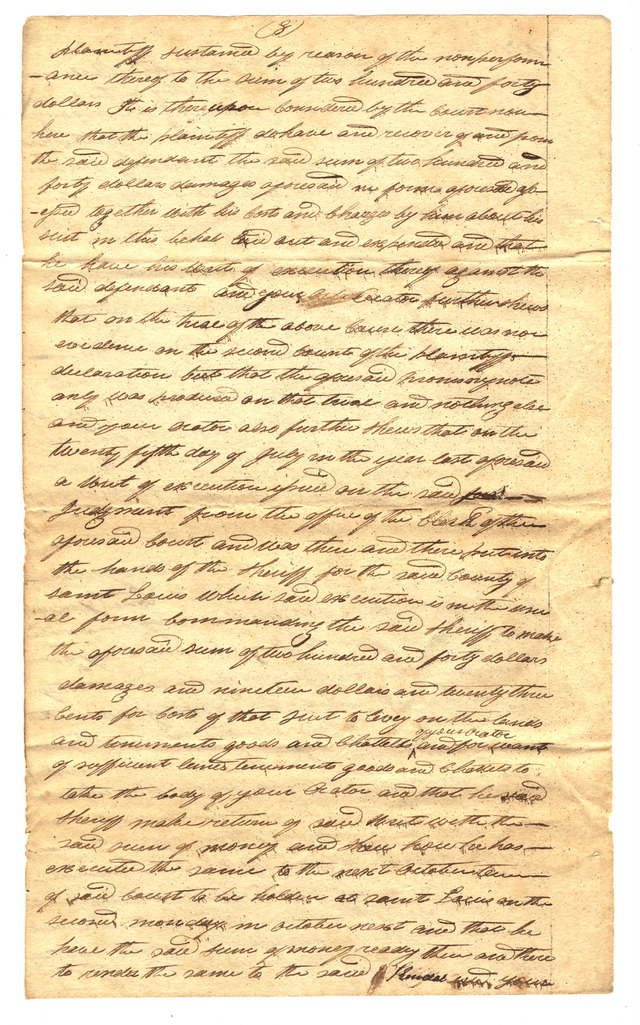 (8)
plaintiff sustained by reason of the nonperform
-ance thereof to the sum of two hundred and forty
dollars It is thereupon Considered by the Court now
here that the plaintiff do have and recover of and from
the said defendant the said sum of two hundred and
forty dollars damages aforesaid in form aforesaid as-
-sessed together with his Costs and Charges by him about his
suit in this behalf laid out and expended and that
he have his writ of execution thereof against the
said defendants and your Orator further shews
that on the trial of the above Cause there was no
evidence on the second Counts of the plaintiffs
declaration but that the aforesaid promissory note
only was produced on that trial and nothing else
and your orator also further shews that on the
twenty fifth day of July in the year last aforesaid
a writ of execution issued on the said
Judgment from the office of the Clerk of the
aforesaid Court and was then and there put into
the hands of the sheriff for the said County of
saint Louis which said execution is in the usu
-al form Commanding the said sheriff to make
the aforesaid sum of two hundred and forty dollars
damages and nineteen dollars and twenty three
Cents for Costs of that suit to levy on the lands
and teniments goods and Chattels of your orator and for want
of sufficient lands teniments goods and Chattels to
take the body of your Orator and that he said
sheriff make return of said writ with the
said sum of money and shew how he has
executed the same to the next October term
of said Court to be holden at saint Louis on the
second monday in october next and that he
have the said sum of money ready then and there
to render the same to the said and your